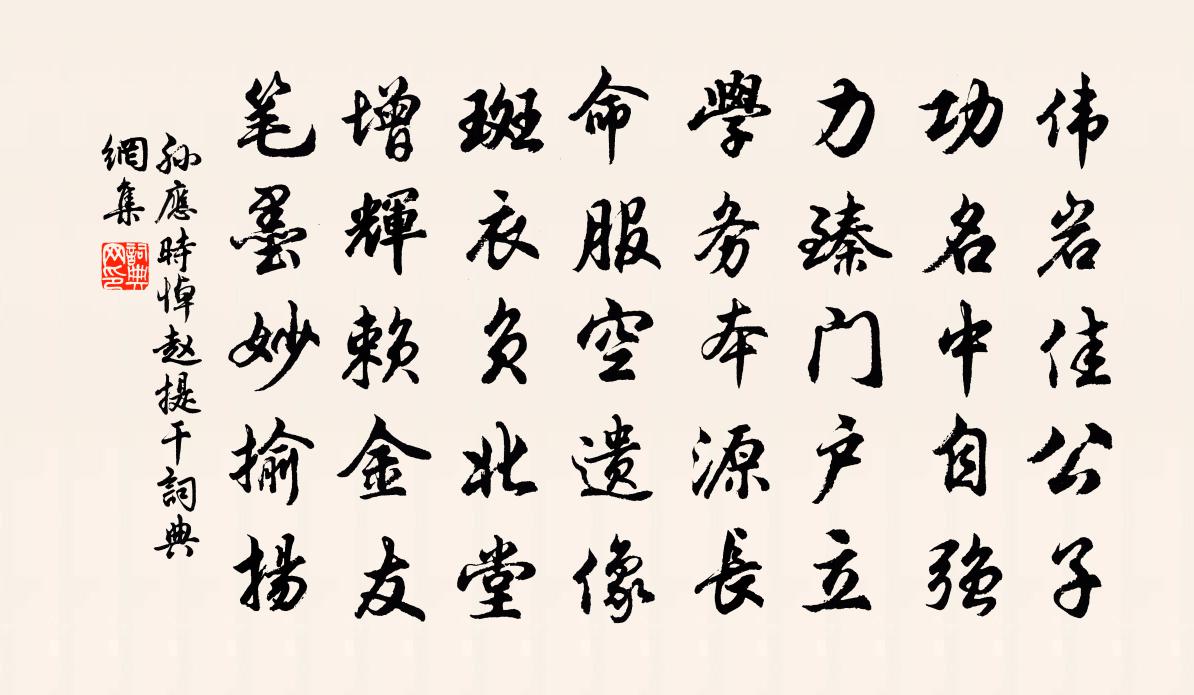 伟岩佳公子
功名中自强
力臻门户立
學务本源長
命服空遗像
斑衣负北堂
增輝赖金友
笔墨妙揄揚
孙應時悼赵提干詞典
網集
詞典網印